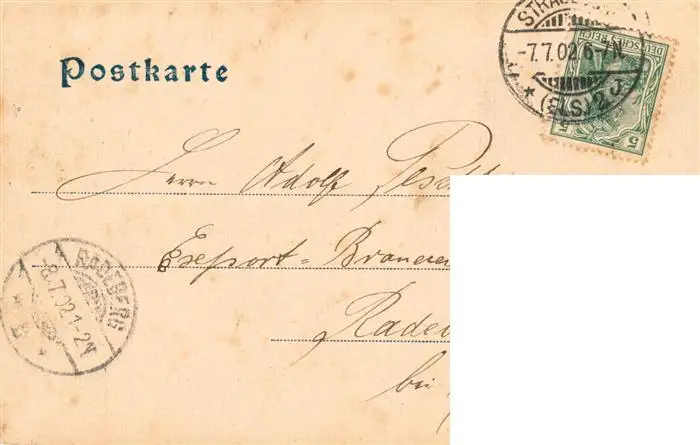 Postkarte
STRASS
-7.7.02.6-7N
(ELS.) 2 J
DEUTSCHES REICH
5 5
Herrn Adolf
Export-Brauerei
Radeb
bei
RADEBERG
8.7.02.1-2N